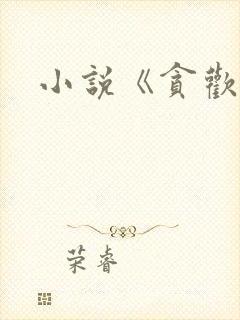 小說《貪歡
荣睿